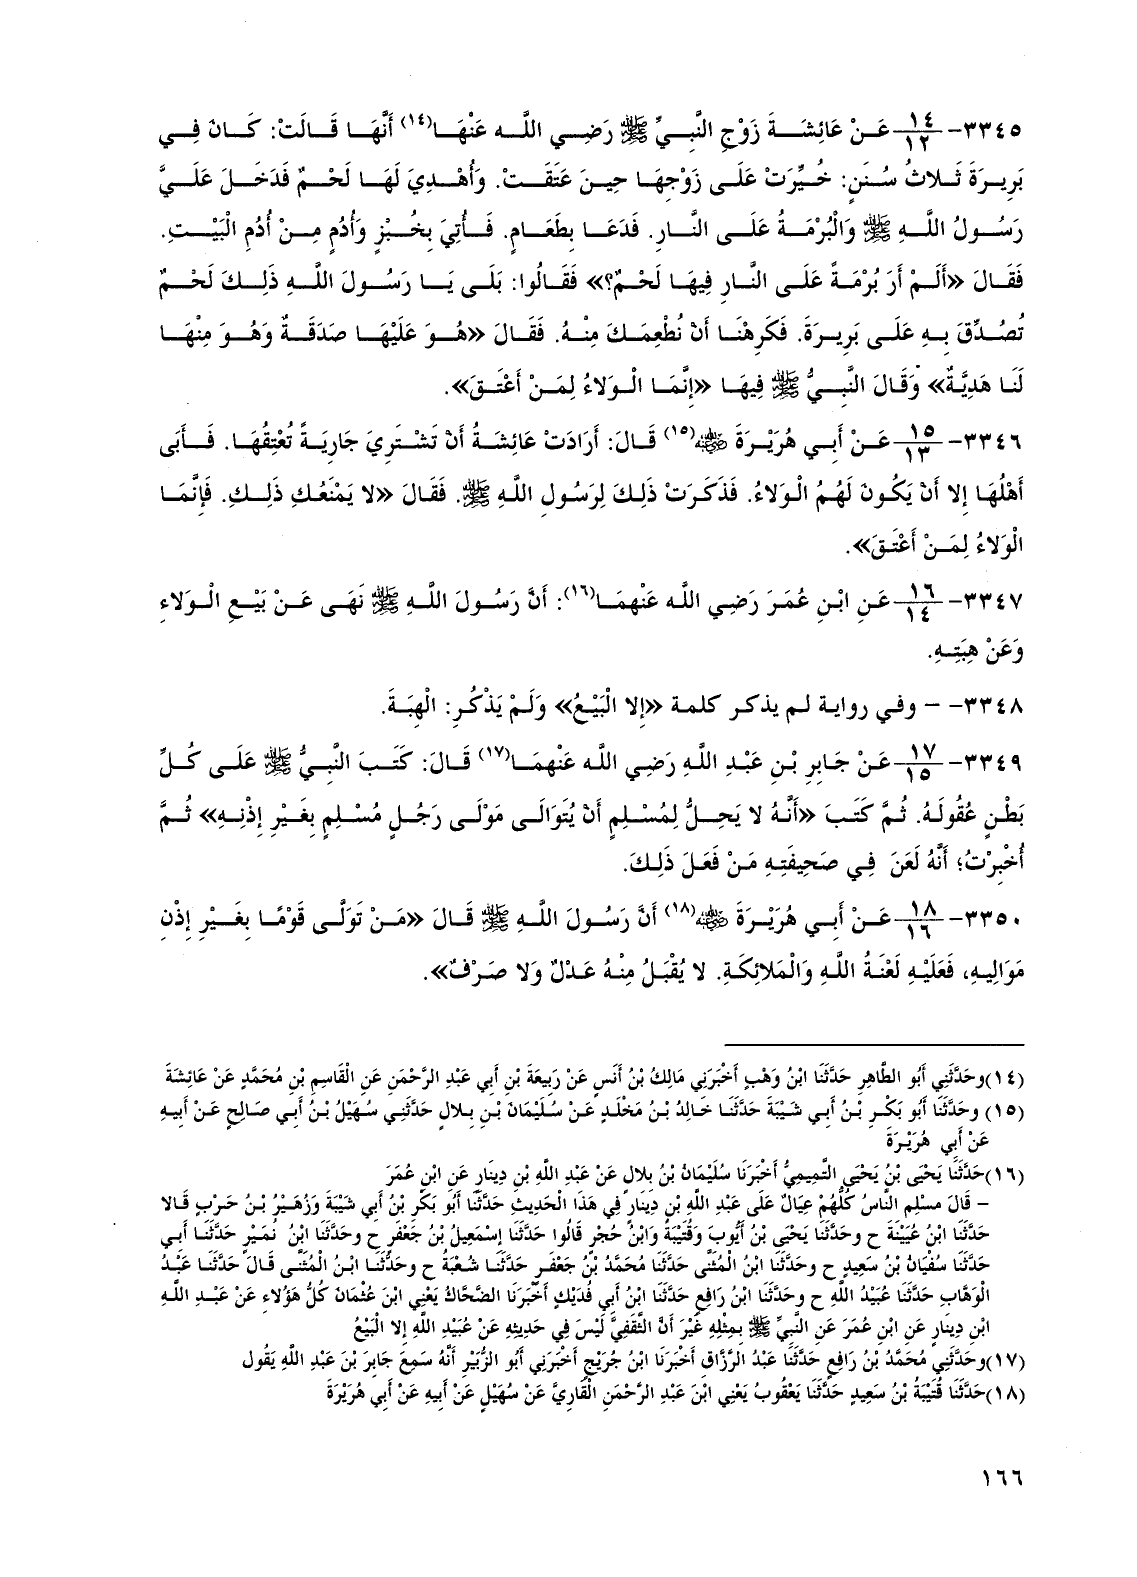 ٣٣٤٥- ١٤/١٢ عَنْ عَائِشَةَ زَوْجِ النَّبِيِّ ﷺ رَضِي اللَّه عَنْهَا(١٤) أَنَّهَا قَالَتْ: كَانَ فِي
بَرِيرَةَ ثَلاثُ سُنَنٍ: خُيِّرَتْ عَلَى زَوْجِهَا حِينَ عَتَقَتْ. وَأُهْدِيَ لَهَا لَحْمٌ فَدَخَلَ عَلَيَّ
رَسُولُ اللَّهِ ﷺ وَالْبُرْمَةُ عَلَى النَّارِ. فَدَعَا بِطَعَامٍ. فَأُتِيَ بِخُبْزٍ وَأُدُمٍ مِنْ أُدُمِ الْبَيْتِ.
فَقَالَ «أَلَمْ أَرَ بُرْمَةً عَلَى النَّارِ فِيهَا لَحْمٌ؟» فَقَالُوا: بَلَى يَا رَسُولَ اللَّهِ ذَلِكَ لَحْمٌ
تُصُدِّقَ بِهِ عَلَى بَرِيرَةَ. فَكَرِهْنَا أَنْ نُطْعِمَكَ مِنْهُ. فَقَالَ «هُوَ عَلَيْهَا صَدَقَةٌ وَهُوَ مِنْهَا
لَنَا هَدِيَّةٌ» وَقَالَ النَّبِيُّ ﷺ فِيهَا «إِنَّمَا الْوَلاءُ لِمَنْ أَعْتَقَ».
٣٣٤٦- ١٥/١٣ عَنْ أَبِي هُرَيْرَةَ ﷺ(١٥) قَالَ: أَرَادَتْ عَائِشَةُ أَنْ تَشْتَرِيَ جَارِيَةً تُعْتِقُهَا. فَأَبَى
أَهْلُهَا إِلا أَنْ يَكُونَ لَهُمُ الْوَلاءُ. فَذَكَرَتْ ذَلِكَ لِرَسُولِ اللَّهِ ﷺ. فَقَالَ «لا يَمْنَعُكِ ذَلِكِ. فَإِنَّمَا
الْوَلاءُ لِمَنْ أَعْتَقَ».
٣٣٤٧- ١٦/١٤ عَنِ ابْنِ عُمَرَ رَضِي اللَّه عَنْهمَا(١٦): أَنَّ رَسُولَ اللَّهِ ﷺ نَهَى عَنْ بَيْعِ الْوَلاءِ
وَعَنْ هِبَتِهِ.
٣٣٤٨- – وفي رواية لم يذكر كلمة «إِلا الْبَيْعُ» وَلَمْ يَذْكُرِ: الْهِبَةَ.
٣٣٤٩- ١٧/١٥ عَنْ جَابِرِ بْنِ عَبْدِ اللَّهِ رَضِي اللَّه عَنْهمَا(١٧) قَالَ: كَتَبَ النَّبِيُّ ﷺ عَلَى كُلِّ
بَطْنٍ عُقُولَهُ. ثُمَّ كَتَبَ «أَنَّهُ لا يَحِلُّ لِمُسْلِمٍ أَنْ يُتَوَالَى مَوْلَى رَجُلٍ مُسْلِمٍ بِغَيْرِ إِذْنِهِ» ثُمَّ
أُخْبِرْتُ؛ أَنَّهُ لَعَنَ فِي صَحِيفَتِهِ مَنْ فَعَلَ ذَلِكَ.
٣٣٥٠- ١٨/١٦ عَنْ أَبِي هُرَيْرَةَ ﷺ(١٨) أَنَّ رَسُولَ اللَّهِ ﷺ قَالَ «مَنْ تَوَلَّى قَوْمًا بِغَيْرِ إِذْنِ
مَوَالِيهِ، فَعَلَيْهِ لَعْنَةُ اللَّهِ وَالْمَلائِكَةِ. لا يُقْبَلُ مِنْهُ عَدْلٌ وَلا صَرْفٌ».
(١٤)وحَدَّثَنِي أَبُو الطَّاهِرِ حَدَّثَنَا ابْنُ وَهْبٍ أَخْبَرَنِي مَالِكُ بْنُ أَنَسٍ عَنْ رَبِيعَةَ بْنِ أَبِي عَبْدِ الرَّحْمَنِ عَنِ الْقَاسِمِ بْنِ مُحَمَّدٍ عَنْ عَائِشَةَ
(١٥) وحَدَّثَنَا أَبُو بَكْرِ بْنُ أَبِي شَيْبَةَ حَدَّثَنَا خَالِدُ بْنُ مَخْلَدٍ عَنْ سُلَيْمَانَ بْنِ بِلالٍ حَدَّثَنِي سُهَيْلُ بْنُ أَبِي صَالِحٍ عَنْ أَبِيهِ
عَنْ أَبِي هُرَيْرَةَ
(١٦)حَدَّثَنَا يَحْيَى بْنُ يَحْيَى التَّمِيمِيُّ أَخْبَرَنَا سُلَيْمَانُ بْنُ بِلالٍ عَنْ عَبْدِ اللَّهِ بْنِ دِينَارٍ عَنِ ابْنِ عُمَرَ
– قَالَ مسْلِم النَّاسُ كُلُّهُمْ عِيَالٌ عَلَى عَبْدِ اللَّهِ بْنِ دِينَارٍ فِي هَذَا الْحَدِيثِ حَدَّثَنَا أَبُو بَكْرِ بْنُ أَبِي شَيْبَةَ وَزُهَيْرُ بْنُ حَرْبٍ قَالا
حَدَّثَنَا ابْنُ عُيَيْنَةَ ح وحَدَّثَنَا يَحْيَى بْنُ أَيُّوبَ وَقُتَيْبَةُ وَابْنُ حُجْرٍ قَالُوا حَدَّثَنَا إِسْمَعِيلُ بْنُ جَعْفَرٍ ح وحَدَّثَنَا ابْنُ نُمَيْرٍ حَدَّثَنَا أَبِي
حَدَّثَنَا سُفْيَانُ بْنُ سَعِيدٍ ح وحَدَّثَنَا ابْنُ الْمُثَنَّى حَدَّثَنَا مُحَمَّدُ بْنُ جَعْفَرٍ حَدَّثَنَا شُعْبَةُ ح وحَدَّثَنَا ابْنُ الْمُثَنَّى قَالَ حَدَّثَنَا عَبْدُ
الْوَهَّابِ حَدَّثَنَا عُبَيْدُ اللَّهِ ح وحَدَّثَنَا ابْنُ رَافِعٍ حَدَّثَنَا ابْنُ أَبِي فُدَيْكٍ أَخْبَرَنَا الضَّحَّاكُ يَعْنِي ابْنَ عُثْمَانَ كُلُّ هَؤُلاءِ عَنْ عَبْدِ اللَّهِ
ابْنِ دِينَارٍ عَنِ ابْنِ عُمَرَ عَنِ النَّبِيِّ ﷺ بِمِثْلِهِ غَيْرَ أَنَّ الثَّقَفِيَّ لَيْسَ فِي حَدِيثِهِ عَنْ عُبَيْدِ اللَّهِ إِلا الْبَيْعُ
(١٧)وحَدَّثَنِي مُحَمَّدُ بْنُ رَافِعٍ حَدَّثَنَا عَبْدُ الرَّزَّاقِ أَخْبَرَنَا ابْنُ جُرَيْجٍ أَخْبَرَنِي أَبُو الزُّبَيْرِ أَنَّهُ سَمِعَ جَابِرَ بْنَ عَبْدِ اللَّهِ يَقُولُ
(١٨)حَدَّثَنَا قُتَيْبَةُ بْنُ سَعِيدٍ حَدَّثَنَا يَعْقُوبُ يَعْنِي ابْنَ عَبْدِ الرَّحْمَنِ الْقَارِيَّ عَنْ سُهَيْلٍ عَنْ أَبِيهِ عَنْ أَبِي هُرَيْرَةَ
١٦٦